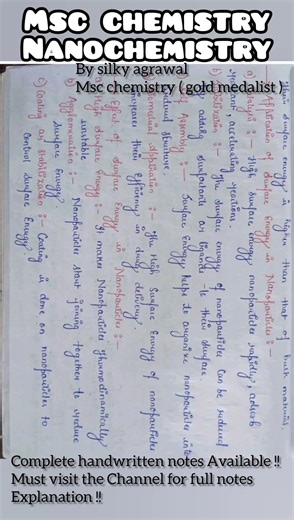 MSC CHEMISTRY
NANOCHEMISTRY
By silky agrawal
Msc chemistry ( gold medalist )
their surface energy is higher than that of bulk material
Application of surface Energy in Nanoparticles :-
a) :- High surface energy nanoparticles rapidly adsorb
reactant, accelerating reactions.
b) Stabilization :- The surface energy of nanoparticles can be reduced
by adding surfactants or ligands to their surface
Self Assembly :- Surface energy helps to organize nanoparticles into
ordered structure
Biomedical Application :- The High Surface Energy of nanoparticles
increases their efficiency in drug delivery.
Effect of surface Energy in Nanoparticles :-
a) High surface energy :- It makes Nanoparticles thermodinamically
unstable
b) Agglomeration :- Nanoparticles start joining together to reduce
surface Energy
c) Coating or stabilization :- Coating is done on nanoparticles to
control surface Energy
Complete handwritten notes Available !!
Must visit the Channel for full notes
Explanation !!